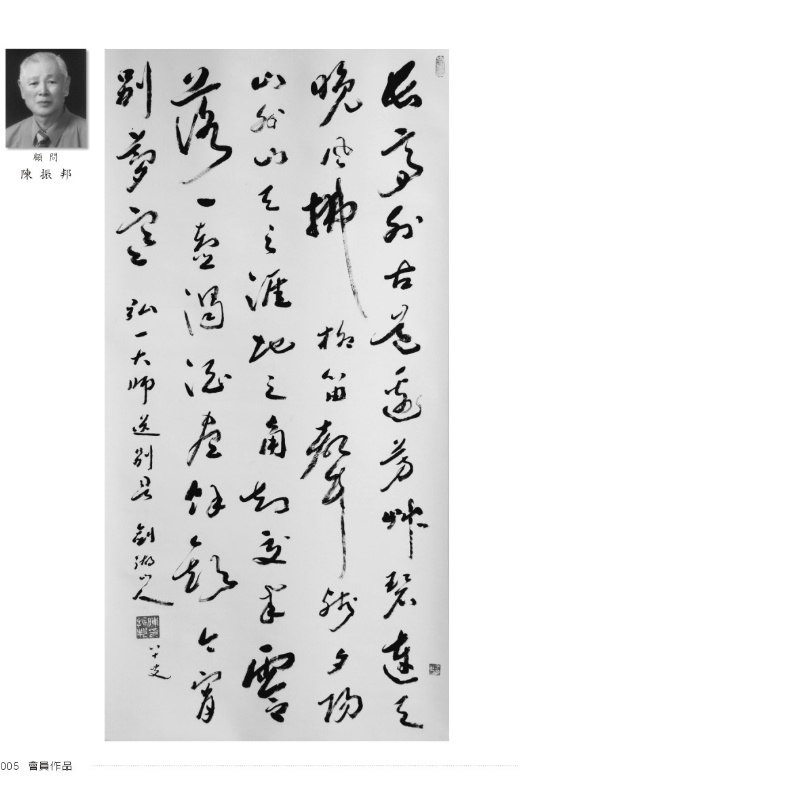 顧問
陳振邦
長亭外古道邊芳艸碧連天
晚風拂柳笛聲殘夕陽
山外山天之涯地之角知交半零
落一壺濁酒盡餘歡今宵
別夢寒 弘一大師送別 劍湖山人
八十
005 會員作品